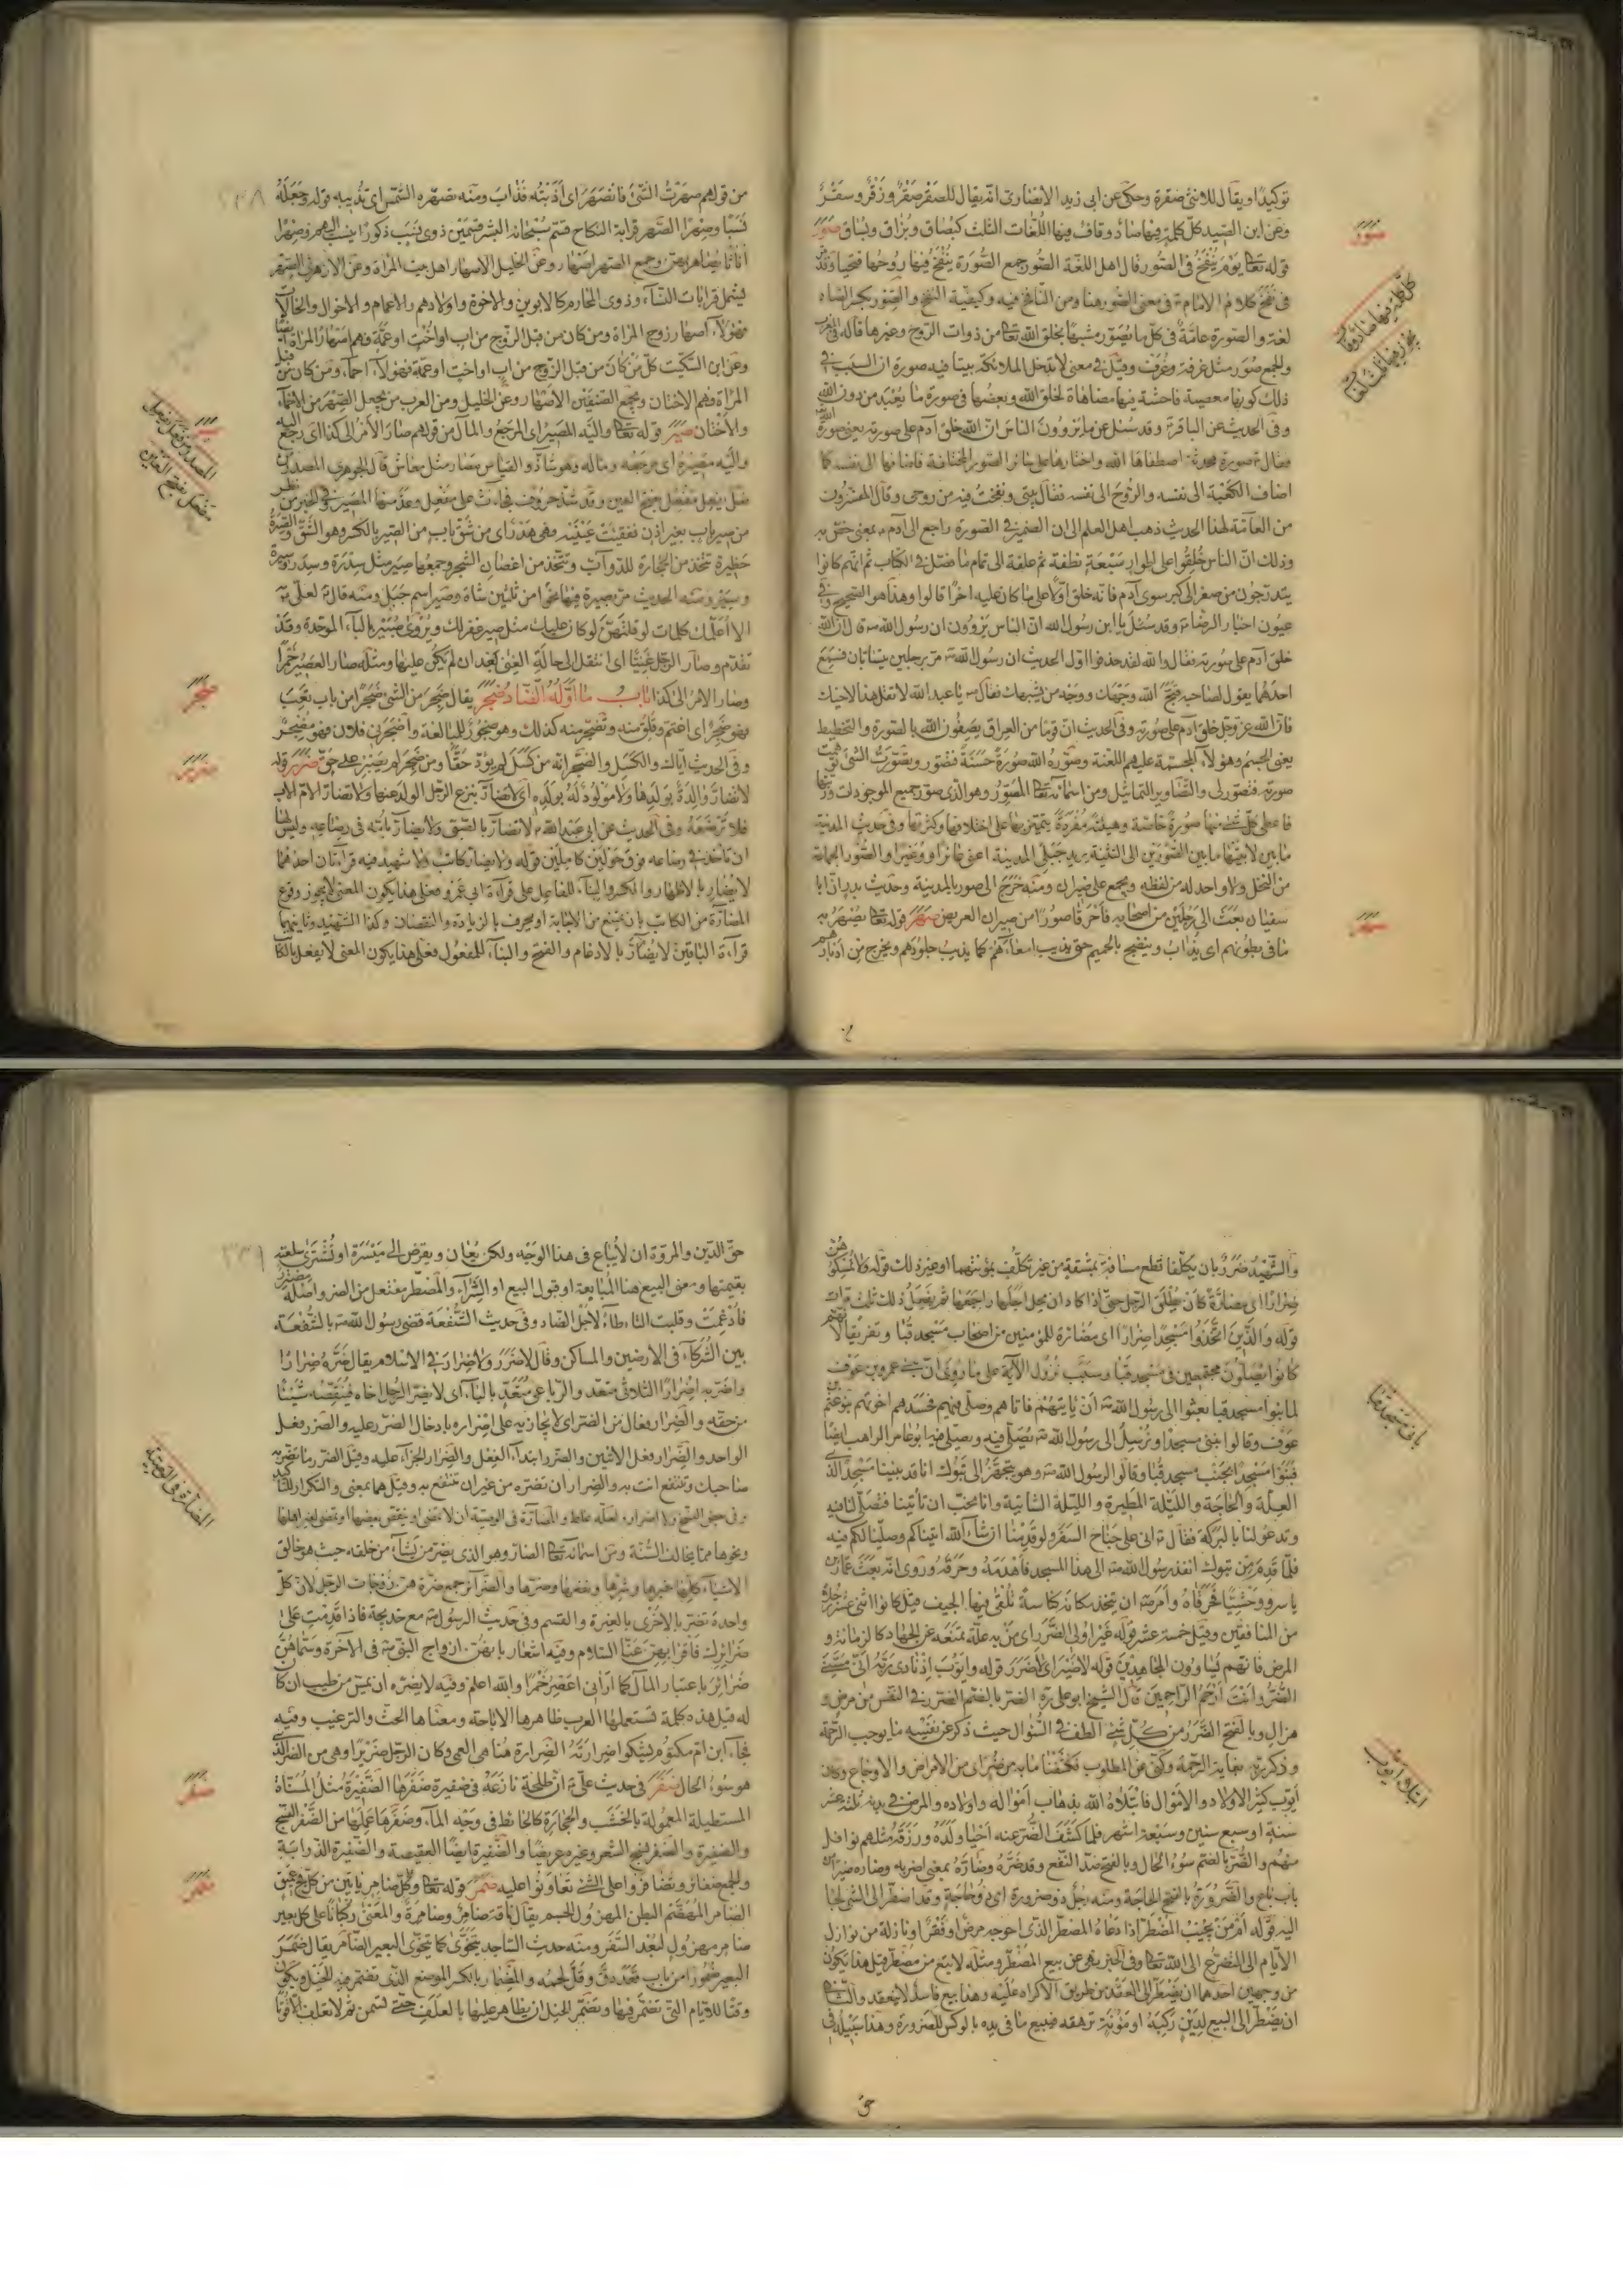 توكيدا ويقال للانثى صقرة وحكى عن ابى زيد الانصارى انه يقال للصقر صقر وزقر وسقر
وعن ابن السيد كل كلمة فيها صاد وقاف فيها اللغات الثلث كبصاق وبزاق وبساق صور
قوله تعالى يوم ينفخ فى الصور قال اهل اللغة الصور جمع الصورة ينفخ فيها روحها فتحيا وقد
فى نفخ كلام الامام فى معنى الصور هنا ومن النافخ فيه وكيفية النفخ والصور بكسر الصاد
لغة والصورة عامة فى كل ما يصور مشبها بخلق الله تعالى من ذوات الروح وغيرها قاله فى المغرب
والجمع صور مثل غرفة وغرف وقيل فى معنى لا تدخل الملائكة بيتا فيه صورة ان السبب فى
ذلك كونها معصية فاحشة فيها مضاهاة لخلق الله وبعضها فى صورة ما يعبد من دون الله
وفى الحديث عن الباقر وقد سئل عما يروون الناس ان الله خلق آدم على صورته يعنى صورة الله
فقال صورة محدثة اصطفاها الله واختارها على سائر الصور المختلفة فاضافها الى نفسه كما
اضاف الكعبة الى نفسه والروح الى نفسه فقال بيتى ونفخت فيه من روحى وقال المفسرون
من العامة لهذا الحديث ذهب اهل العلم الى ان الضمير فى الصورة راجع الى آدم بمعنى خص به
وذلك ان الناس خلقوا على اطوار سبعة نطفة ثم علقة الى تمام ما فصل فى الكتاب ثم انهم كانوا
يتدرجون من صغر الى كبر سوى آدم فانه خلق اولا على ما كان عليه اخرا قالوا وهذا هو الصحيح وفى
عيون اخبار الرضا وقد سئل يا ابن رسول الله ان الناس يروون ان رسول الله قال ان الله
خلق آدم على صورته فقال والله لقد حذفوا اول الحديث ان رسول الله مر برجلين يتسابان فسمع
احدهما يقول لصاحبه قبح الله وجهك ووجه من يشبهك فقال يا عبد الله لا تقل هذا لاخيك
فان الله عز وجل خلق آدم على صورته وفى الحديث ان قوما من العراق يصفون الله بالصورة والتخطيط
يعنى الجسم وهؤلاء المجسمة عليهم اللعنة وصوره الله صورة حسنة فتصور وتصورت الشئ توهمت
صورته فتصور لى والتصاوير التماثيل ومن اسمائه تعالى المصور وهو الذى صور جميع الموجودات ورتبها
فاعطى كل شئ منها صورة خاصة وهيئة مفردة يتميز بها على اختلافها وكثرتها وفى حديث المدينة
ما بين لابتيها ما بين الصورين الى الثنية يريد جبلى المدينة اعنى عائرا ووعيرا والصور الجماعة
من النخل ولا واحد له من لفظه ويجمع على صيران ومنه خرج الى صور بالمدينة وحديث بدر ان ابا
سفيان بعث الى رجلين من اصحابه فاحرقا صورا من صيران العريض صهر قوله تعالى يصهر به
ما فى بطونهم اى يذاب وينضج بالحميم حتى يذيب امعاءهم كما يذيب جلودهم ويخرج من ادبارهم
صور
كل كلمة فيها صاد وقاف
يجوز فيها ثلث لغات
صهر
من قولهم صهرت الشئ فانصهر اى اذبته فذاب ومنه تصهره الشمس اى تذيبه قوله وجعله
نسبا وصهرا الصهر قرابة النكاح قسم سبحانه البشر قسمين ذوى نسب ذكورا ينسب اليهم وصهرا
اناثا يصاهر بهن وجمع الصهر اصهار وعن الخليل الاصهار اهل بيت المراة وعن الازهرى الصهر
يشمل قرابات النساء وذوى المحارم كالابوين والاخوة واولادهم والاعمام والاخوال والخالات
فهؤلاء اصهار زوج المراة ومن كان من قبل الزوج من اب او اخ او عمة فهم اصهار المراة ايضا
وعن ابن السكيت كل من كان من قبل الزوج من اب او اخ او عمة فهؤلاء احماء ومن كان من قبل
المراة فهم الاختان ويجمع الصنفين الاصهار وعن الخليل ومن العرب من يجعل الصهر من الاحماء
والاختان صير قوله تعالى واليه المصير اى المرجع والمال من قولهم صار الامر الى كذا اى رجع اليه
واليه مصيره اى مرجعه وماله وهو شاذ والقياس مصار مثل معاش قال الجوهرى المصدر من
فعل يفعل مفعل بفتح العين وقد شذ حروف فجاءت على مفعل وعد منها المصير وفى الخبر من نظر
من صير باب بغير اذن ففقئت عينه فهى هدر اى من شق باب من الصير بالكسر وهو الشق والصيرة
حظيرة تتخذ من الحجارة للدواب وتتخذ من اغصان الشجر وجمعها صير مثل سدرة وسدر
ومنه الحديث مر بصيرة فيها نحوا من ثلثين شاة وصير اسم جبل ومنه قال لعلى
الا اعلمك كلمات لو قلتهن لو كان عليك مثل صير غفر لك ويروى صبير بالباء الموحدة وقد
تقدم وصار الرجل غنيا اى انتقل الى حالة الغنى بعد ان لم يكن عليها ومثله صار العصير خمرا
وصار الامر الى كذا باب ما اوله الضاد ضجر يقال ضجر من الشئ ضجرا من باب تعب
فهو ضجر اى اغتم وقلق منه وتضجر منه كذلك وهو ضجور للمبالغة واضجرنى فلان فهو مضجر
وفى الحديث اياك والكسل والضجر انه من كسل لم يؤد حقا ومن ضجر لم يصبر على حق ضرر قوله
لا تضار والدة بولدها ولا مولود له بولده اى لا تضار بنزع الرجل الولد عنها ولا تضار الام الاب
فلا ترضعه وفى الحديث عن ابى عبد الله لا تضار بالصبى ولا يضار بامه فى رضاعه وليس لها
ان تاخذ فى رضاعه فوق حولين كاملين قوله ولا يضار كاتب ولا شهيد فيه قراءتان احدهما
لا يضار بالاظهار والكسر والبناء للفاعل على قراءة ابى عمرو فعلى هذا يكون المعنى لا يجوز وقوع
المضارة من الكاتب بان يمتنع من الاجابة او يحرف بالزيادة والنقصان وكذا الشهيد وثانيهما
قراءة الباقين لا يضار بالادغام والفتح والبناء للمفعول فعلى هذا يكون المعنى لا يفعل بالكاتب
صير
المصدر من فعل يفعل
مفعل بفتح العين
ضجر
ضرر
والشهيد ضرر بان يكلفا قطع مسافة بمشقة من غير تكلف بمؤنتهما او غير ذلك قوله ولا تمسكوهن
ضرارا اى مضارة كان يطلق الرجل حتى اذا كاد ان يحل اجلها راجعها ثم يفعل ذلك ثلث مرات
قوله والذين اتخذوا مسجدا ضرارا اى مضارة للمؤمنين من اصحاب مسجد قبا وتفريقا لانهم
كانوا يصلون مجتمعين فى مسجد قبا وسبب نزول الآية على ما روى ان بنى عمرو بن عوف
لما بنوا مسجد قبا بعثوا الى رسول الله ان ياتيهم فاتاهم وصلى فيهم فحسدهم اخوتهم بنو غنم بن
عوف وقالوا نبنى مسجدا ونرسل الى رسول الله يصلى فيه ويصلى فيه ابو عامر الراهب ايضا
فبنوا مسجدا بجنب مسجد قبا وقالوا لرسول الله وهو يتجهز الى تبوك انا قد بنينا مسجدا لذى
العلة والحاجة والليلة المطيرة والليلة الشاتية وانا نحب ان تاتينا فتصلى لنا فيه
وتدعو لنا بالبركة فقال انى على جناح السفر ولو قدمنا ان شاء الله اتيناكم وصلينا لكم فيه
فلما قدم من تبوك انفذ رسول الله الى هذا المسجد فاهدمه وحرقه وروى انه بعث عمار بن
ياسر ووحشيا فحرقاه وامر ان يتخذ مكانه كناسة تلقى فيها الجيف قيل كانوا اثنى عشر رجلا
من المنافقين وقيل خمسة عشر قوله غير اولى الضرر اى من به علة تمنعه عن الجهاد كالزمانة و
المرض فانهم يساوون المجاهدين قوله لا ضير اى لا ضرر قوله وايوب اذ نادى ربه انى مسنى
الضر وانت ارحم الراحمين قال الشيخ ابو على ره الضر بالضم الضرر فى النفس من مرض و
هزال وبالفتح الضرر من كل شئ الطف فى السؤال حيث ذكر عن نفسه ما يوجب الرحمة
وذكر ربه بغاية الرحمة وكنى عن المطلوب فكشفنا ما به من ضر اى من الامراض والاوجاع وكان
ايوب كثير الاولاد والاموال فابتلاه الله بذهاب امواله واولاده والمرض فى بدنه ثلثة عشر
سنة او سبع سنين وسبعة اشهر فلما كشف الضر عنه احيا ولده ورزقه مثلهم نوافل
منهم والضر بالضم سوء الحال وبالفتح ضد النفع وقد ضره وضاره بمعنى اضر به وضاره ضيرا من
باب باع والضرورة بالفتح الحاجة ومنه رجل ذو ضرورة اى ذو حاجة وقد اضطر الى الشئ لجا
اليه قوله امن يجيب المضطر اذا دعاه المضطر الذى احوجه مرض او فقر او نازلة من نوازل
الايام الى التضرع الى الله تعالى وفى الخبر نهى عن بيع المضطر ومثله لا تبتع من مضطر قيل هذا يكون
من وجهين احدهما ان يضطر الى العقد من طريق الاكراه عليه وهذا بيع فاسد لا ينعقد والثانى
ان يضطر الى البيع لدين ركبه او مؤنة ترهقه فيبيع ما فى يده بالوكس للضرورة وهذا سبيله فى
بناء مسجد قبا
ابتلاء ايوب
حق الدين والمروة ان لا يباع فى هذا الوجه ولكن يعان ويقرض الى ميسرة او تشترى سلعته
بقيمتها ومعنى البيع هنا المبايعة او قبول البيع او الشراء والمضطر مفتعل من الضر واصله مضترر
فادغمت وقلبت التاء طاء لاجل الضاد وفى حديث الشفعة قضى رسول الله بالشفعة
بين الشركاء فى الارضين والمساكن وقال لا ضرر ولا ضرار فى الاسلام يقال ضره ضرارا
واضر به اضرارا الثلاثى متعد والرباعى متعد بالباء اى لا يضر الرجل اخاه فينقصه شيئا
من حقه والضرار فعال من الضر اى لا يجازيه على اضراره بادخال الضرر عليه والضرر فعل
الواحد والضرار فعل الاثنين والضرر ابتداء الفعل والضرار الجزاء عليه وقيل الضرر ما تضر به
صاحبك وتنتفع انت به والضرار ان تضره من غير ان تنتفع به وقيل هما بمعنى والتكرار للتاكيد
وفى بعض النسخ ولا اضرار لعله غلط والمضارة فى الوصية ان لا تمضى او ينقص بعضها او يوصى لغير اهلها
ونحوها مما يخالف السنة ومن اسمائه تعالى الضار وهو الذى يضر من يشاء من خلقه حيث هو خالق
الاشياء كلها خيرها وشرها ونفعها وضرها والضرائر جمع ضرة هن زوجات الرجل لان كل
واحدة تضر بالاخرى بالغيرة والقسم وفى حديث الرسول مع خديجة فاذا قدمت على
ضرائرك فاقرايهن عنا السلام وفيه اشعار بانهن ازواج النبى فى الآخرة وسماهن
ضرائر باعتبار المال كما ارانى اعصر خمرا والله اعلم وفيه لا يضره ان يمس من طيب ان كان
له قيل هذه كلمة تستعملها العرب ظاهرها الاباحة ومعناها الحث والترغيب وفيه
فجاء ابن ام مكتوم يشكو ضرارته الضرارة هنا هى العمى وكان الرجل ضريرا وهى من الضر الذى
هو سوء الحال ضفر فى حديث على ان طلحة نازعه فى ضفيرة ضفرها الضفيرة مثل المسناة
المستطيلة المعمولة بالخشب والحجارة كالحائط فى وجه الماء وضفرها عملها من الضفر النسج
والضفيرة والضفر نسج الشعر وغيره عريضا والضفيرة ايضا العقيصة والضفيرة الذوابة
والجمع ضفائر وتضافروا على الشئ تعاونوا عليه ضمر قوله تعالى وعلى كل ضامر ياتين من كل فج عميق
الضامر المهضم البطن المهزول الجسم يقال ناقة ضامر وضامرة والمعنى ركبانا على كل بعير
ضامر مهزول لبعد السفر ومنه حديث الساجد يتخوى كما يتخوى البعير الضامر يقال ضمر
البعير ضمورا من باب قعد دق وقل لحمه والمضمار بالكسر الموضع الذى تضمر فيه الخيل ويكون
وقتا للايام التى تضمر فيها وتضمر الخيل ان يظاهر عليها بالعلف حتى تسمن ثم لا تعلف الا قوتا
المضارة فى الوصية
ضفر
ضمر